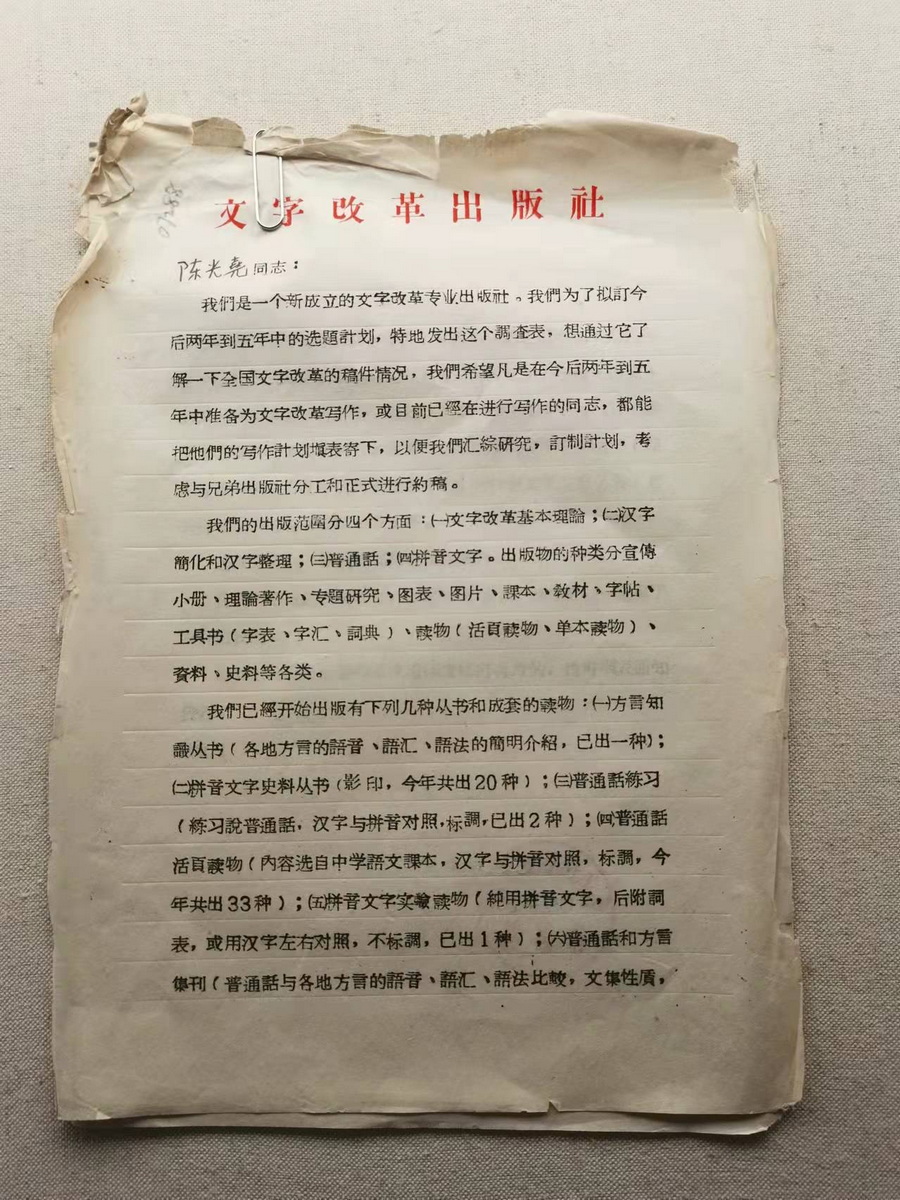 文字改革出版社
陈光尧同志：
我們是一个新成立的文字改革专业出版社。我們为了拟訂今
后两年到五年中的选題計划，特地发出这个調查表，想通过它了
解一下全国文字改革的稿件情况，我們希望凡是在今后两年到五
年中准备为文字改革写作，或目前已經在进行写作的同志，都能
把他們的写作計划填表寄下，以便我們汇綜研究，訂制計划，考
虑与兄弟出版社分工和正式进行約稿。
我們的出版范圍分四个方面：㈠文字改革基本理論；㈡汉字
簡化和汉字整理；㈢普通話；㈣拼音文字。出版物的种类分宣傳
小册、理論著作、专題研究、图表、图片、課本、教材、字帖、
工具书（字表、字汇、詞典）、讀物（活頁讀物、单本讀物）、
資料、史料等各类。
我們已經开始出版有下列几种丛书和成套的讀物：㈠方言知
識丛书（各地方言的語音、語汇、語法的簡明介紹，已出一种）；
㈡拼音文字史料丛书（影印，今年共出20种）；㈢普通話練习
（練习說普通話，汉字与拼音对照，标調，已出2种）；㈣普通話
活頁讀物（內容选自中学語文課本，汉字与拼音对照，标調，今
年共出33种）；㈤拼音文字实驗讀物（純用拼音文字，后附詞
表，或用汉字左右对照，不标調，已出1种）；㈥普通話和方言
集刊（普通話与各地方言的語音、語汇、語法比較，文集性质，